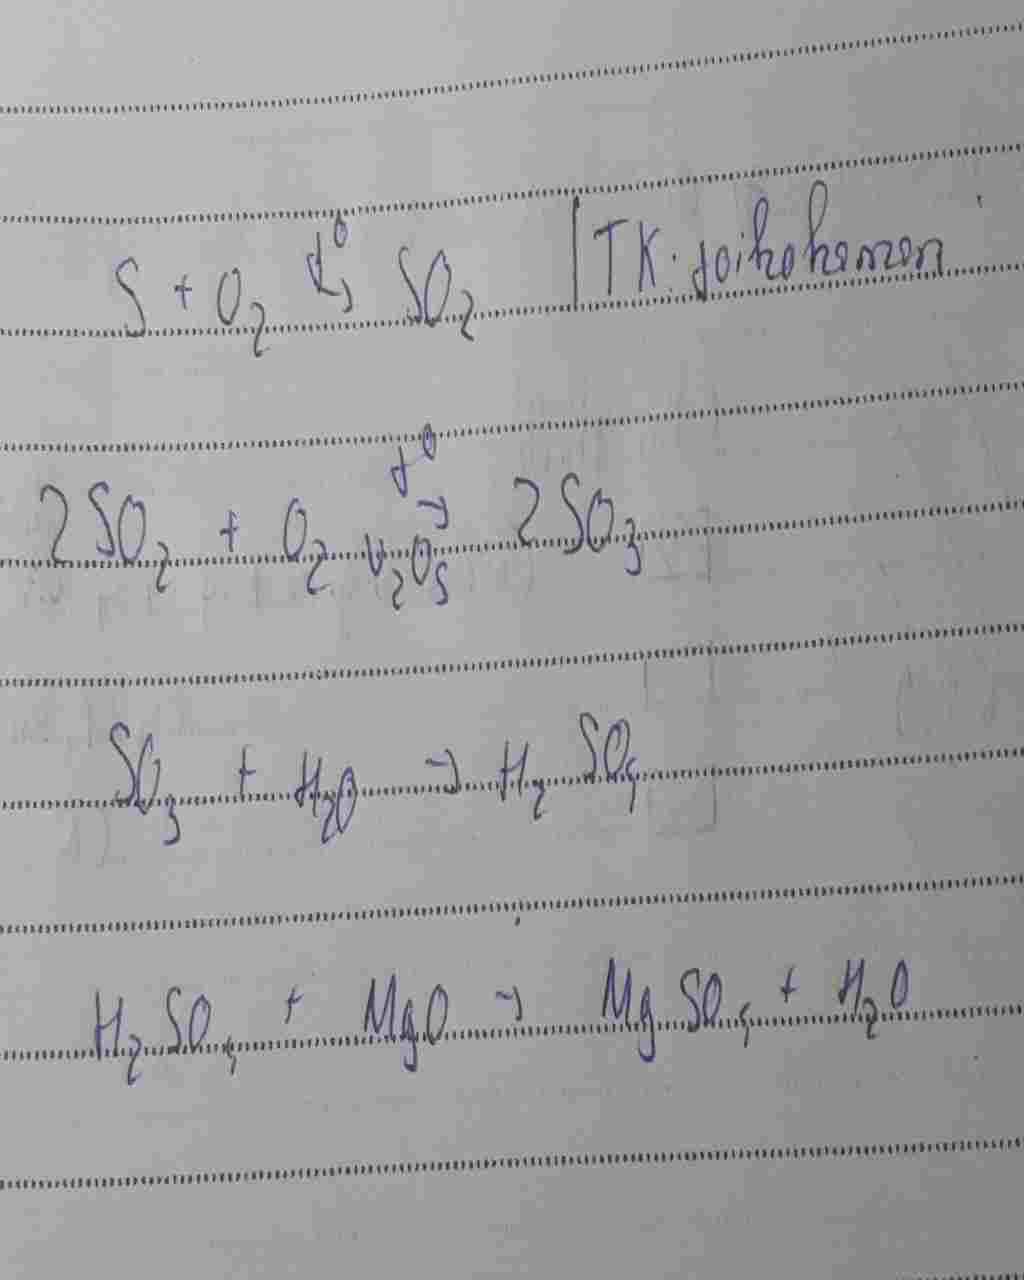 S + O₂ t⁰→ SO₂ | TK: joihohemen
2SO₂ + O₂ t⁰→ V₂O₅ 2SO₃
SO₃ + H₂O → H₂SO₄
H₂SO₄ + MgO → MgSO₄ + H₂O